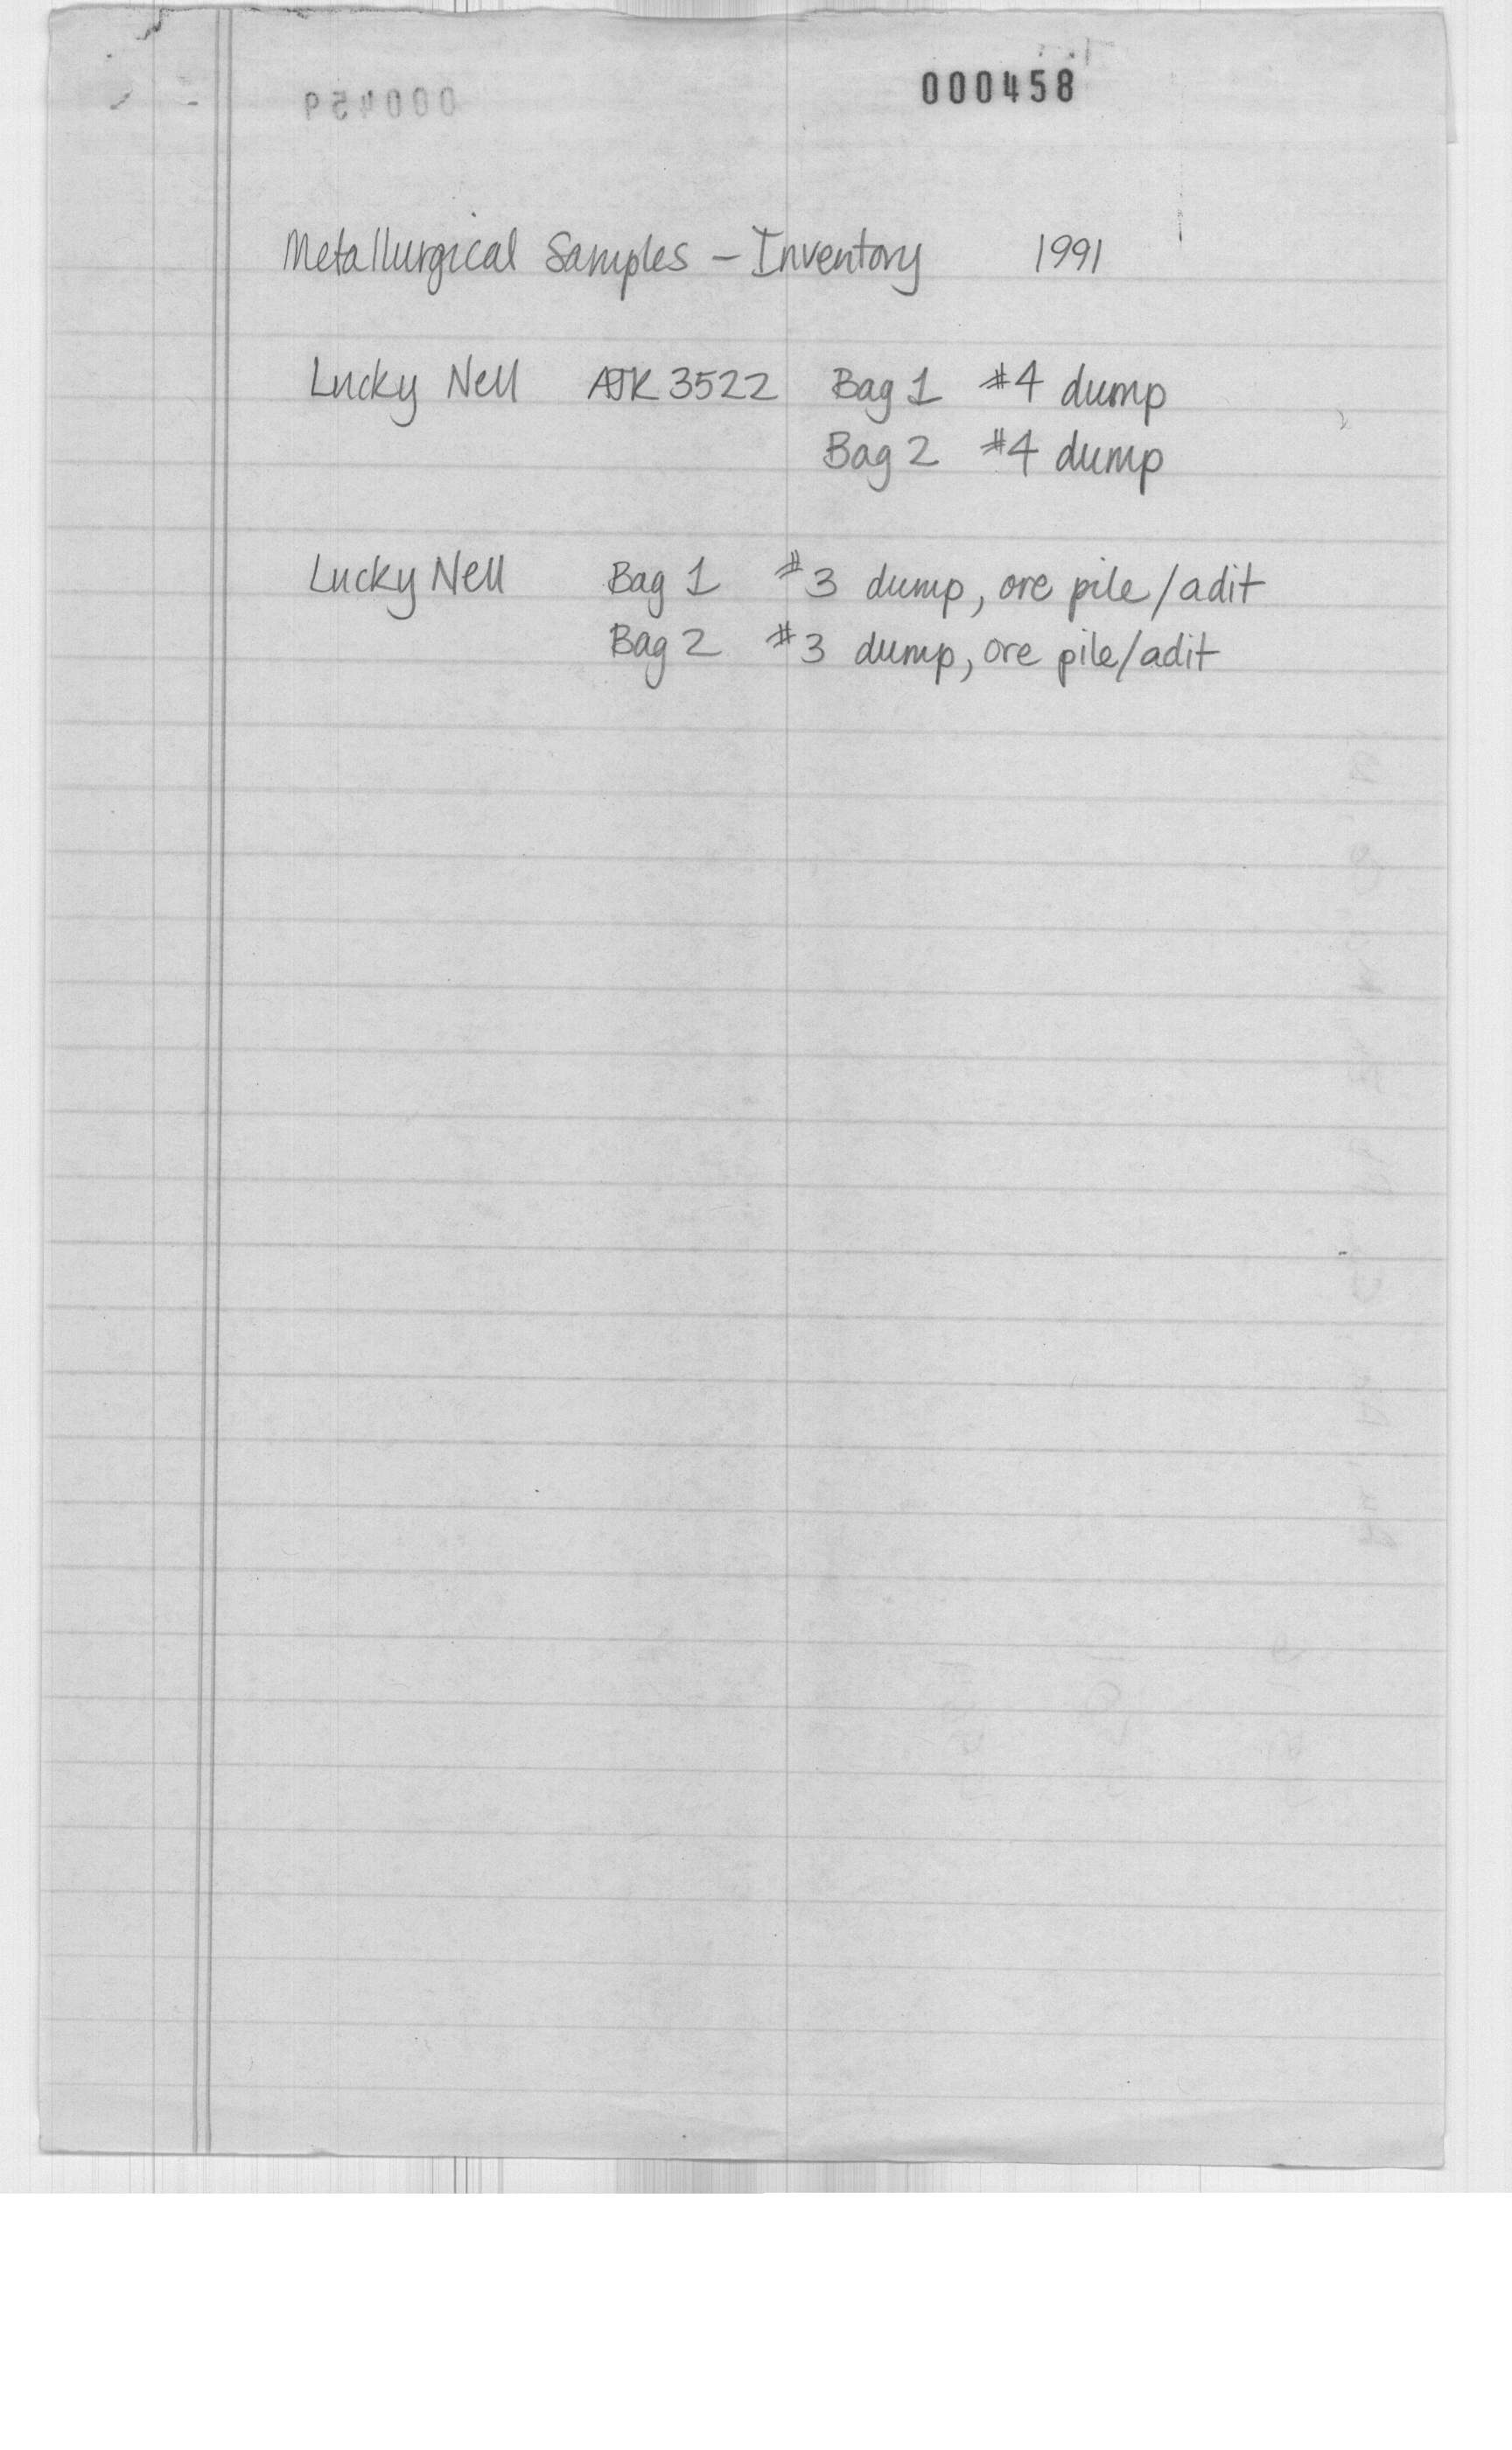 000458
Metallurgical Samples - Inventory 1991
Lucky Nell AJK 3522 Bag 1 #4 dump
Bag 2 #4 dump
Lucky Nell Bag 1 #3 dump, ore pile/adit
Bag 2 #3 dump, ore pile/adit